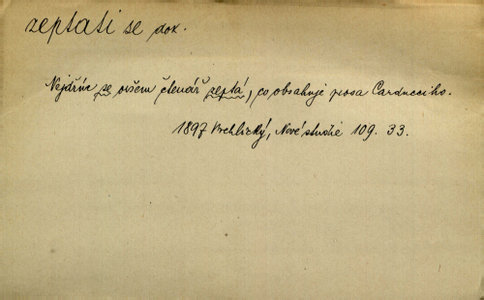 zeptati se dok.
Nejdříve se ovšem čtenář zeptá, co obsahuje prosa Carducciho.
1897 Vrchlický, Nové studie 109. 33.